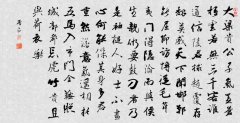 大梁貴公子氣蓋蒼梧
雲若無三千客誰道
信陵君救趙復存
魏英威天下聞邯鄲
能屈節訪博從毛薛
夷門得隱淪而與侯
生親仍要鼓刀者乃
是袖槌人好士不盡
心何能保其身多君
重然諾意氣遥相託
五馬入市門金鞍照
城郭都忘虎竹貴且
與荷衣樂